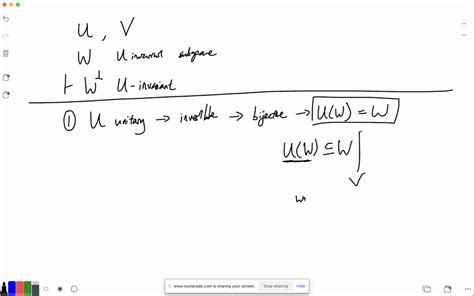 U , V
W U invariant subspace
⊢ W⊥ U-invariant
① U unitary → invertible → bijective → U(W) = W
U(W) ⊆ W
V
w
www.numerade.com is sharing your screen. Stop sharing Hide